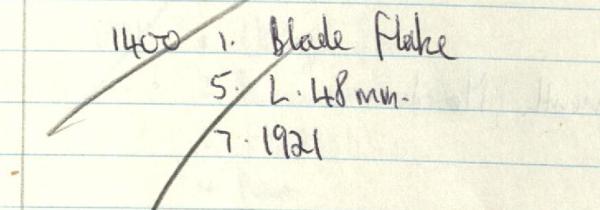 1400 1. Blade Flake
5. L. 48 mm.
7. 1921